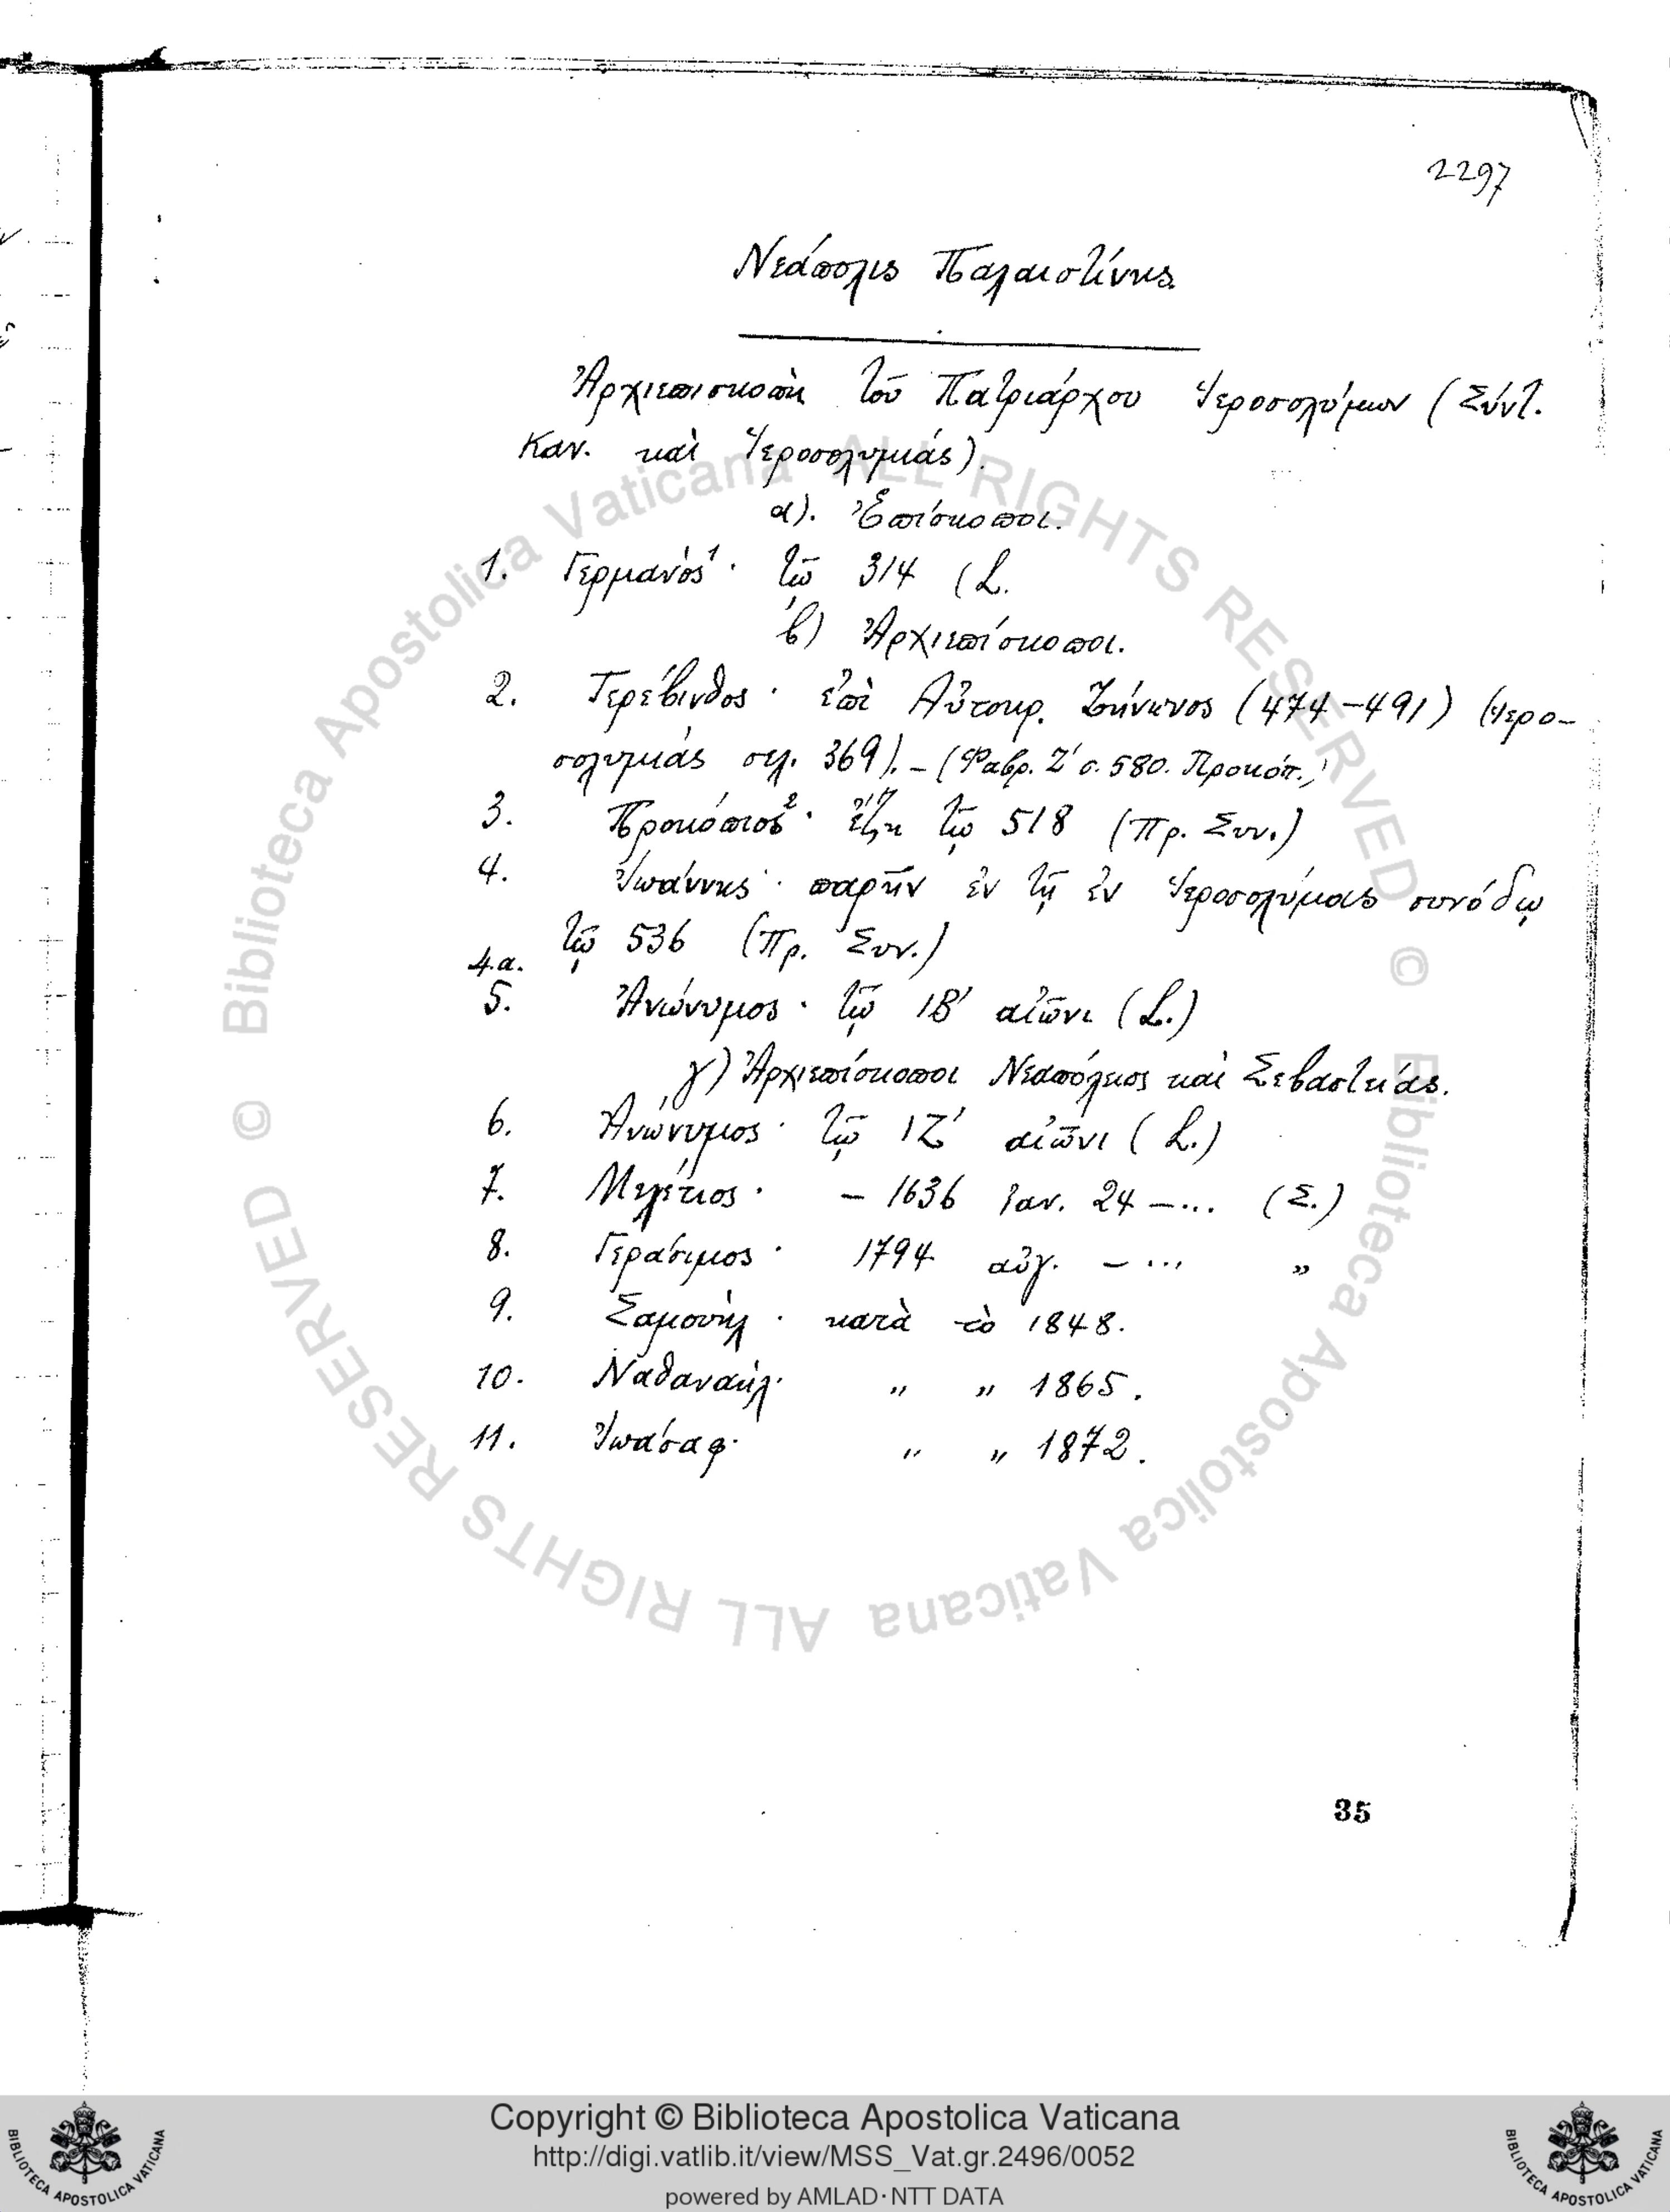 2297
Νεάπολις Παλαιστίνης
Ἀρχιεπισκοπὴ τοῦ Πατριάρχου Ἱεροσολύμων (Σύντ.
Καν. καὶ Ἱεροσολυμιάς).
α). Ἐπίσκοποι.
1. Γερμανός¹· τῷ 314 (L.
β) Ἀρχιεπίσκοποι.
2. Τερέβινθος· ἐπὶ Αὐτοκρ. Ζήνωνος (474-491) (Ἱερο-
σολυμιάς σελ. 369).-(Φαβρ. Ζ' σ. 580. Προκόπ.)
3. Προκόπιος²· ἔζη τῷ 518 (Πρ. Συν.)
4. Ἰωάννης· παρῆν ἐν τῇ ἐν Ἱεροσολύμοις συνόδῳ
τῷ 536 (Πρ. Συν.)
4.α.
5. Ἀνώνυμος· τῷ ΙΒ' αἰῶνι (L.)
γ) Ἀρχιεπίσκοποι Νεαπόλεως καὶ Σεβαστείας.
6. Ἀνώνυμος· τῷ ΙΖ' αἰῶνι (L.)
7. Μελέτιος· - 1636 Ἰαν. 24 -... (Σ.)
8. Γεράσιμος· 1794 αὐγ. -... „
9. Σαμουὴλ· κατὰ τὸ 1848.
10. Ναθαναὴλ· „ „ 1865.
11. Ἰωάσαφ· „ „ 1872.
35
© Biblioteca Apostolica Vaticana ALL RIGHTS RESERVED © Biblioteca Apostolica Vaticana ALL RIGHTS RESERVED
Copyright © Biblioteca Apostolica Vaticana
http://digi.vatlib.it/view/MSS_Vat.gr.2496/0052
powered by AMLAD·NTT DATA
BIBLIOTECA APOSTOLICA VATICANA
BIBLIOTECA APOSTOLICA VATICANA